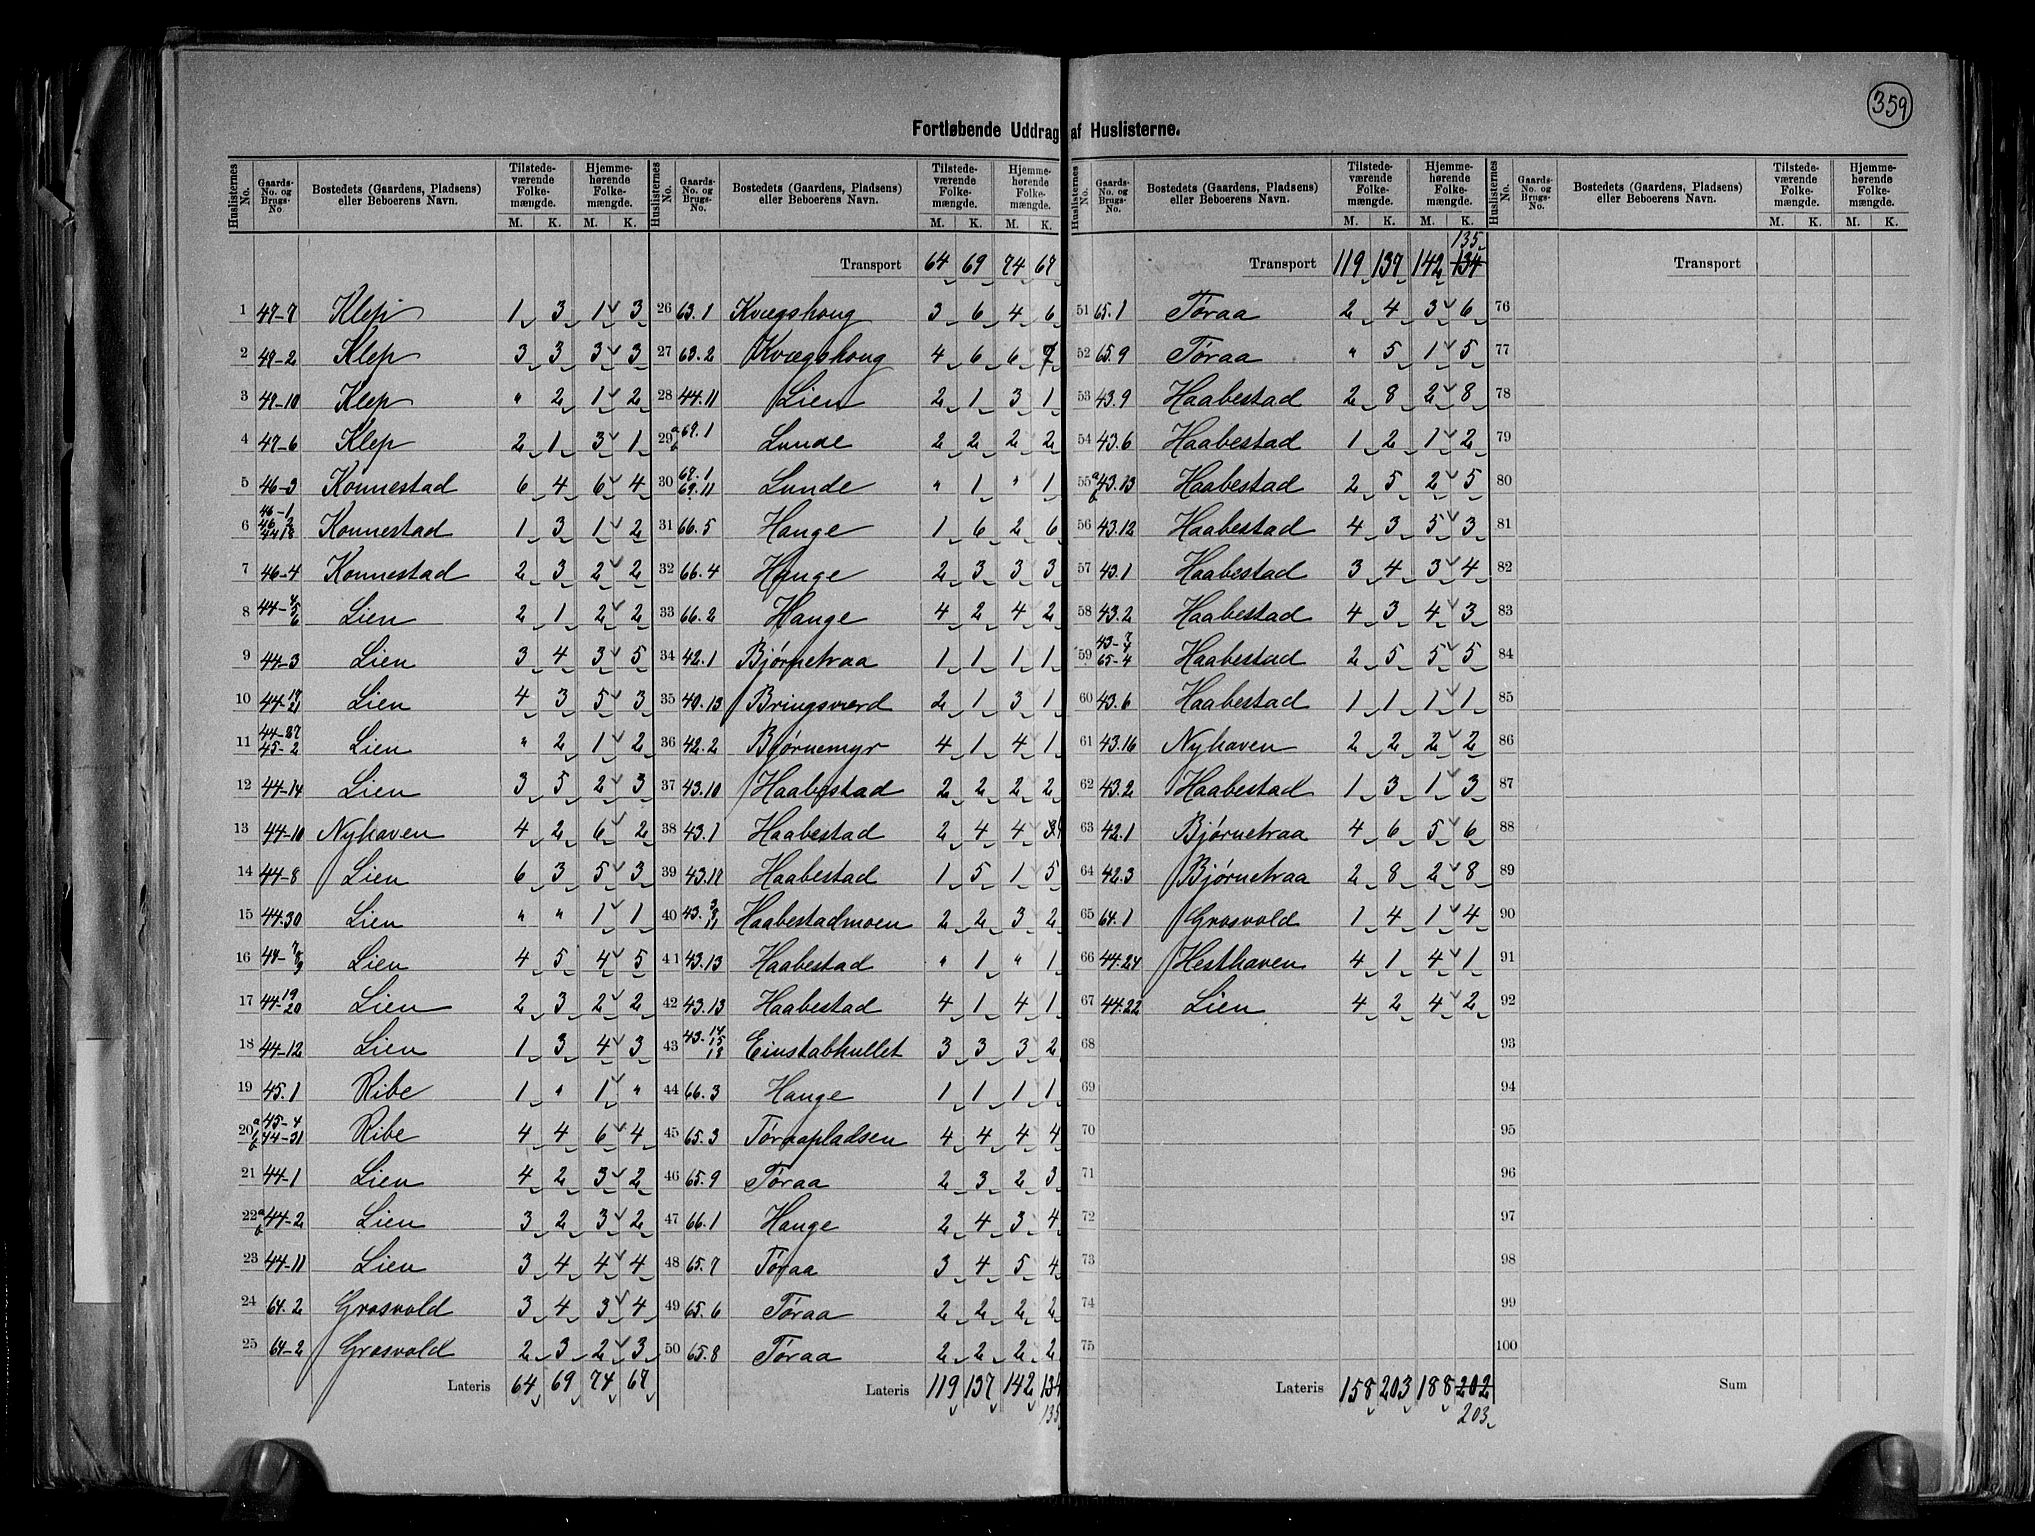 359
Fortløbende Uddrag af Huslisterne.
Huslisternes No. Gaards-No. og Brugs-No. Bostedets (Gaardens, Pladsens) eller Beboerens Navn. Tilstedeværende Folkemængde. M. K. Hjemmehørende Folkemængde. M. K.
1 47-7 Klep 1 3 1 3
2 47-2 Klep 3 3 3 3
3 47-10 Klep " 2 1 2
4 47-6 Klep 2 1 3 1
5 46-3 Konnestad 6 4 6 4
6 46-1 46 2 44 18 Konnestad 1 3 1 2
7 46-4 Konnestad 2 3 2 2
8 44-4 5 6 Lien 2 1 2 2
9 44-3 Lien 3 4 3 5
10 44-19 21 Lien 4 3 5 3
11 44-27 45-2 Lien " 2 1 2
12 44-14 Lien 3 5 2 3
13 44-10 Nyhaven 4 2 6 2
14 44-8 Lien 6 3 5 3
15 44.30 Lien " " 1 1
16 44-7 8 9 Lien 4 5 4 5
17 44-19 20 Lien 2 3 2 2
18 44-12 Lien 1 3 4 3
19 45.1 Ribe 1 " 1 "
20 a b 45-4 44-31 Ribe 4 4 6 4
21 44-1 Lien 4 2 3 2
22 a b 44-2 Lien 3 2 3 2
23 44-11 Lien 3 4 4 4
24 64.2 Grosvold 3 4 3 4
25 64-2 Grosvold 2 3 2 3
Lateris 64 69 74 67
Huslisternes No. Gaards-No. og Brugs-No. Bostedets (Gaardens, Pladsens) eller Beboerens Navn. Tilstedeværende Folkemængde. M. K. Hjemmehørende Folkemængde. M. K.
Transport 64 69 74 67
26 63.1 Kvægshoug 3 6 4 6
27 63.2 Kvægshoug 4 6 6 7
28 44.11 Lien 2 1 3 1
29 a b 67.1 Lunde 2 2 2 2
30 67.1 69.11 Lunde " 1 " 1
31 66.5 Hauge 1 6 2 6
32 66.4 Hauge 2 3 3 3
33 66.2 Hauge 4 2 4 2
34 42.1 Bjørnetraa 1 1 1 1
35 40.13 Bringsværd 2 1 3 1
36 42.2 Bjørnemyr 4 1 4 1
37 43.10 Haabestad 2 2 2 2
38 43.1 Haabestad 2 4 4 4
39 43.17 Haabestad 1 5 1 5
40 43. 3 8 11 Haabestadmoen 2 2 3 2
41 43.13 Haabestad " 1 " 1
42 43.13 Haabestad 4 1 4 1
43 43.14 15 18 Einstabhullet 3 3 3 2
44 66.3 Hauge 1 1 1 1
45 65.3 Tøraapladsen 4 4 4 4
46 65.9 Tøraa 2 3 2 3
47 66.1 Hauge 2 4 3 4
48 65.7 Tøraa 3 4 5 4
49 65.6 Tøraa 2 2 2 2
50 65.8 Tøraa 2 2 2 2
Lateris 119 137 142 134
135
Huslisternes No. Gaards-No. og Brugs-No. Bostedets (Gaardens, Pladsens) eller Beboerens Navn. Tilstedeværende Folkemængde. M. K. Hjemmehørende Folkemængde. M. K.
135
Transport 119 137 142 134
51 65.1 Tøraa 2 4 3 6
52 65.9 Tøraa " 5 1 5
53 43.9 Haabestad 2 8 2 8
54 43.6 Haabestad 1 2 1 2
55 a b 43.13 Haabestad 2 5 2 5
56 43.12 Haabestad 4 3 5 3
57 43.1 Haabestad 3 4 3 4
58 43.2 Haabestad 4 3 4 3
59 43-7 4 65-4 Haabestad 2 5 5 5
60 43.6 Haabestad 1 1 1 1
61 43.16 Nyhaven 2 2 2 2
62 43.2 Haabestad 1 3 1 3
63 42.1 Bjørnetraa 4 6 5 6
64 42.3 Bjørnetraa 2 8 2 8
65 64.1 Grosvold 1 4 1 4
66 44.24 Hesthaven 4 1 4 1
67 44.22 Lien 4 2 4 2
68
69
70
71
72
73
74
75
Lateris 158 203 188 202
203
Huslisternes No. Gaards-No. og Brugs-No. Bostedets (Gaardens, Pladsens) eller Beboerens Navn. Tilstedeværende Folkemængde. M. K. Hjemmehørende Folkemængde. M. K.
Transport
76
77
78
79
80
81
82
83
84
85
86
87
88
89
90
91
92
93
94
95
96
97
98
99
100
Sum